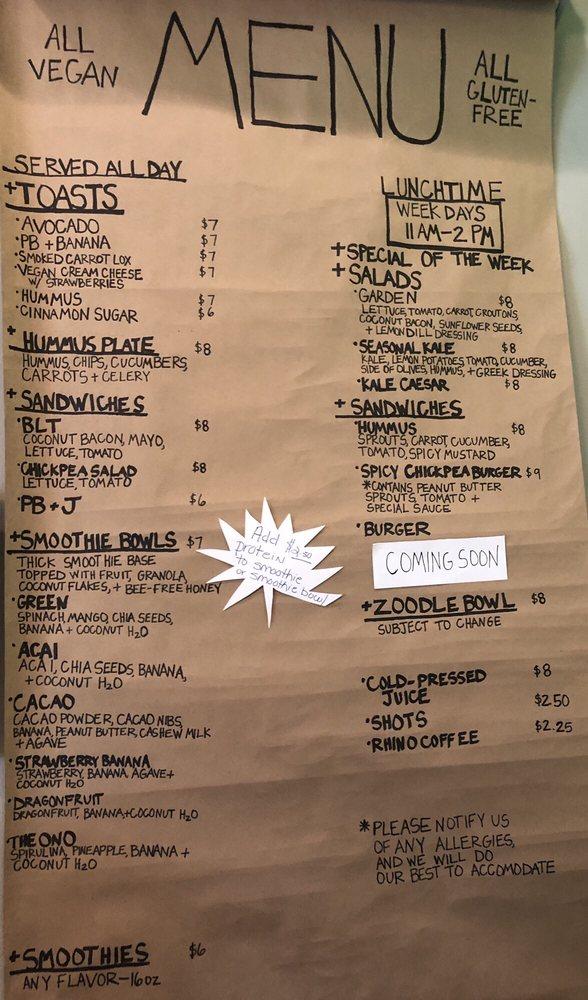 ALL
VEGAN
MENU
ALL
GLUTEN-
FREE
SERVED ALL DAY
+TOASTS
·AVOCADO $7
·PB+BANANA $7
·SMOKED CARROT LOX $7
·VEGAN CREAM CHEESE $7
W/ STRAWBERRIES
·HUMMUS $7
·CINNAMON SUGAR $6
+HUMMUS PLATE $8
HUMMUS, CHIPS, CUCUMBERS
CARROTS + CELERY
+SANDWICHES
·BLT $8
COCONUT BACON, MAYO,
LETTUCE, TOMATO
·CHICKPEA SALAD $8
LETTUCE, TOMATO
·PB+J $6
+SMOOTHIE BOWLS $7
THICK SMOOTHIE BASE
TOPPED WITH FRUIT, GRANOLA,
COCONUT FLAKES, + BEE-FREE HONEY
·GREEN
SPINACH, MANGO, CHIA SEEDS,
BANANA + COCONUT H2O
·ACAI
ACAI, CHIA SEEDS, BANANA,
+ COCONUT H2O
·CACAO
CACAO POWDER, CACAO NIBS,
BANANA, PEANUT BUTTER, CASHEW MILK
+ AGAVE
·STRAWBERRY BANANA
STRAWBERRY, BANANA, AGAVE+
COCONUT H2O
·DRAGONFRUIT
DRAGONFRUIT, BANANA,+COCONUT H2O
THE ONO
SPIRULINA, PINEAPPLE, BANANA +
COCONUT H2O
+SMOOTHIES $6
ANY FLAVOR-16oz
Add
Protein
to smoothie
or smoothie bowl
LUNCHTIME
WEEKDAYS
11AM-2 PM
+SPECIAL OF THE WEEK
+SALADS
·GARDEN $8
LETTUCE, TOMATO, CARROT, CROUTONS,
COCONUT BACON, SUNFLOWER SEEDS,
+ LEMON DILL DRESSING
·SEASONAL KALE $8
KALE, LEMON POTATOES TOMATO, CUCUMBER,
SIDE OF OLIVES, HUMMUS, + GREEK DRESSING
·KALE CAESAR $8
+SANDWICHES
·HUMMUS $8
SPROUTS, CARROT, CUCUMBER,
TOMATO, SPICY MUSTARD
·SPICY CHICKPEA BURGER $9
*CONTAINS PEANUT BUTTER
SPROUTS, TOMATO +
SPECIAL SAUCE
·BURGER
COMING SOON
+ZOODLE BOWL $8
SUBJECT TO CHANGE
·COLD-PRESSED $8
JUICE
·SHOTS $2.50
·RHINO COFFEE $2.25
*PLEASE NOTIFY US
OF ANY ALLERGIES,
AND WE WILL DO
OUR BEST TO ACCOMODATE